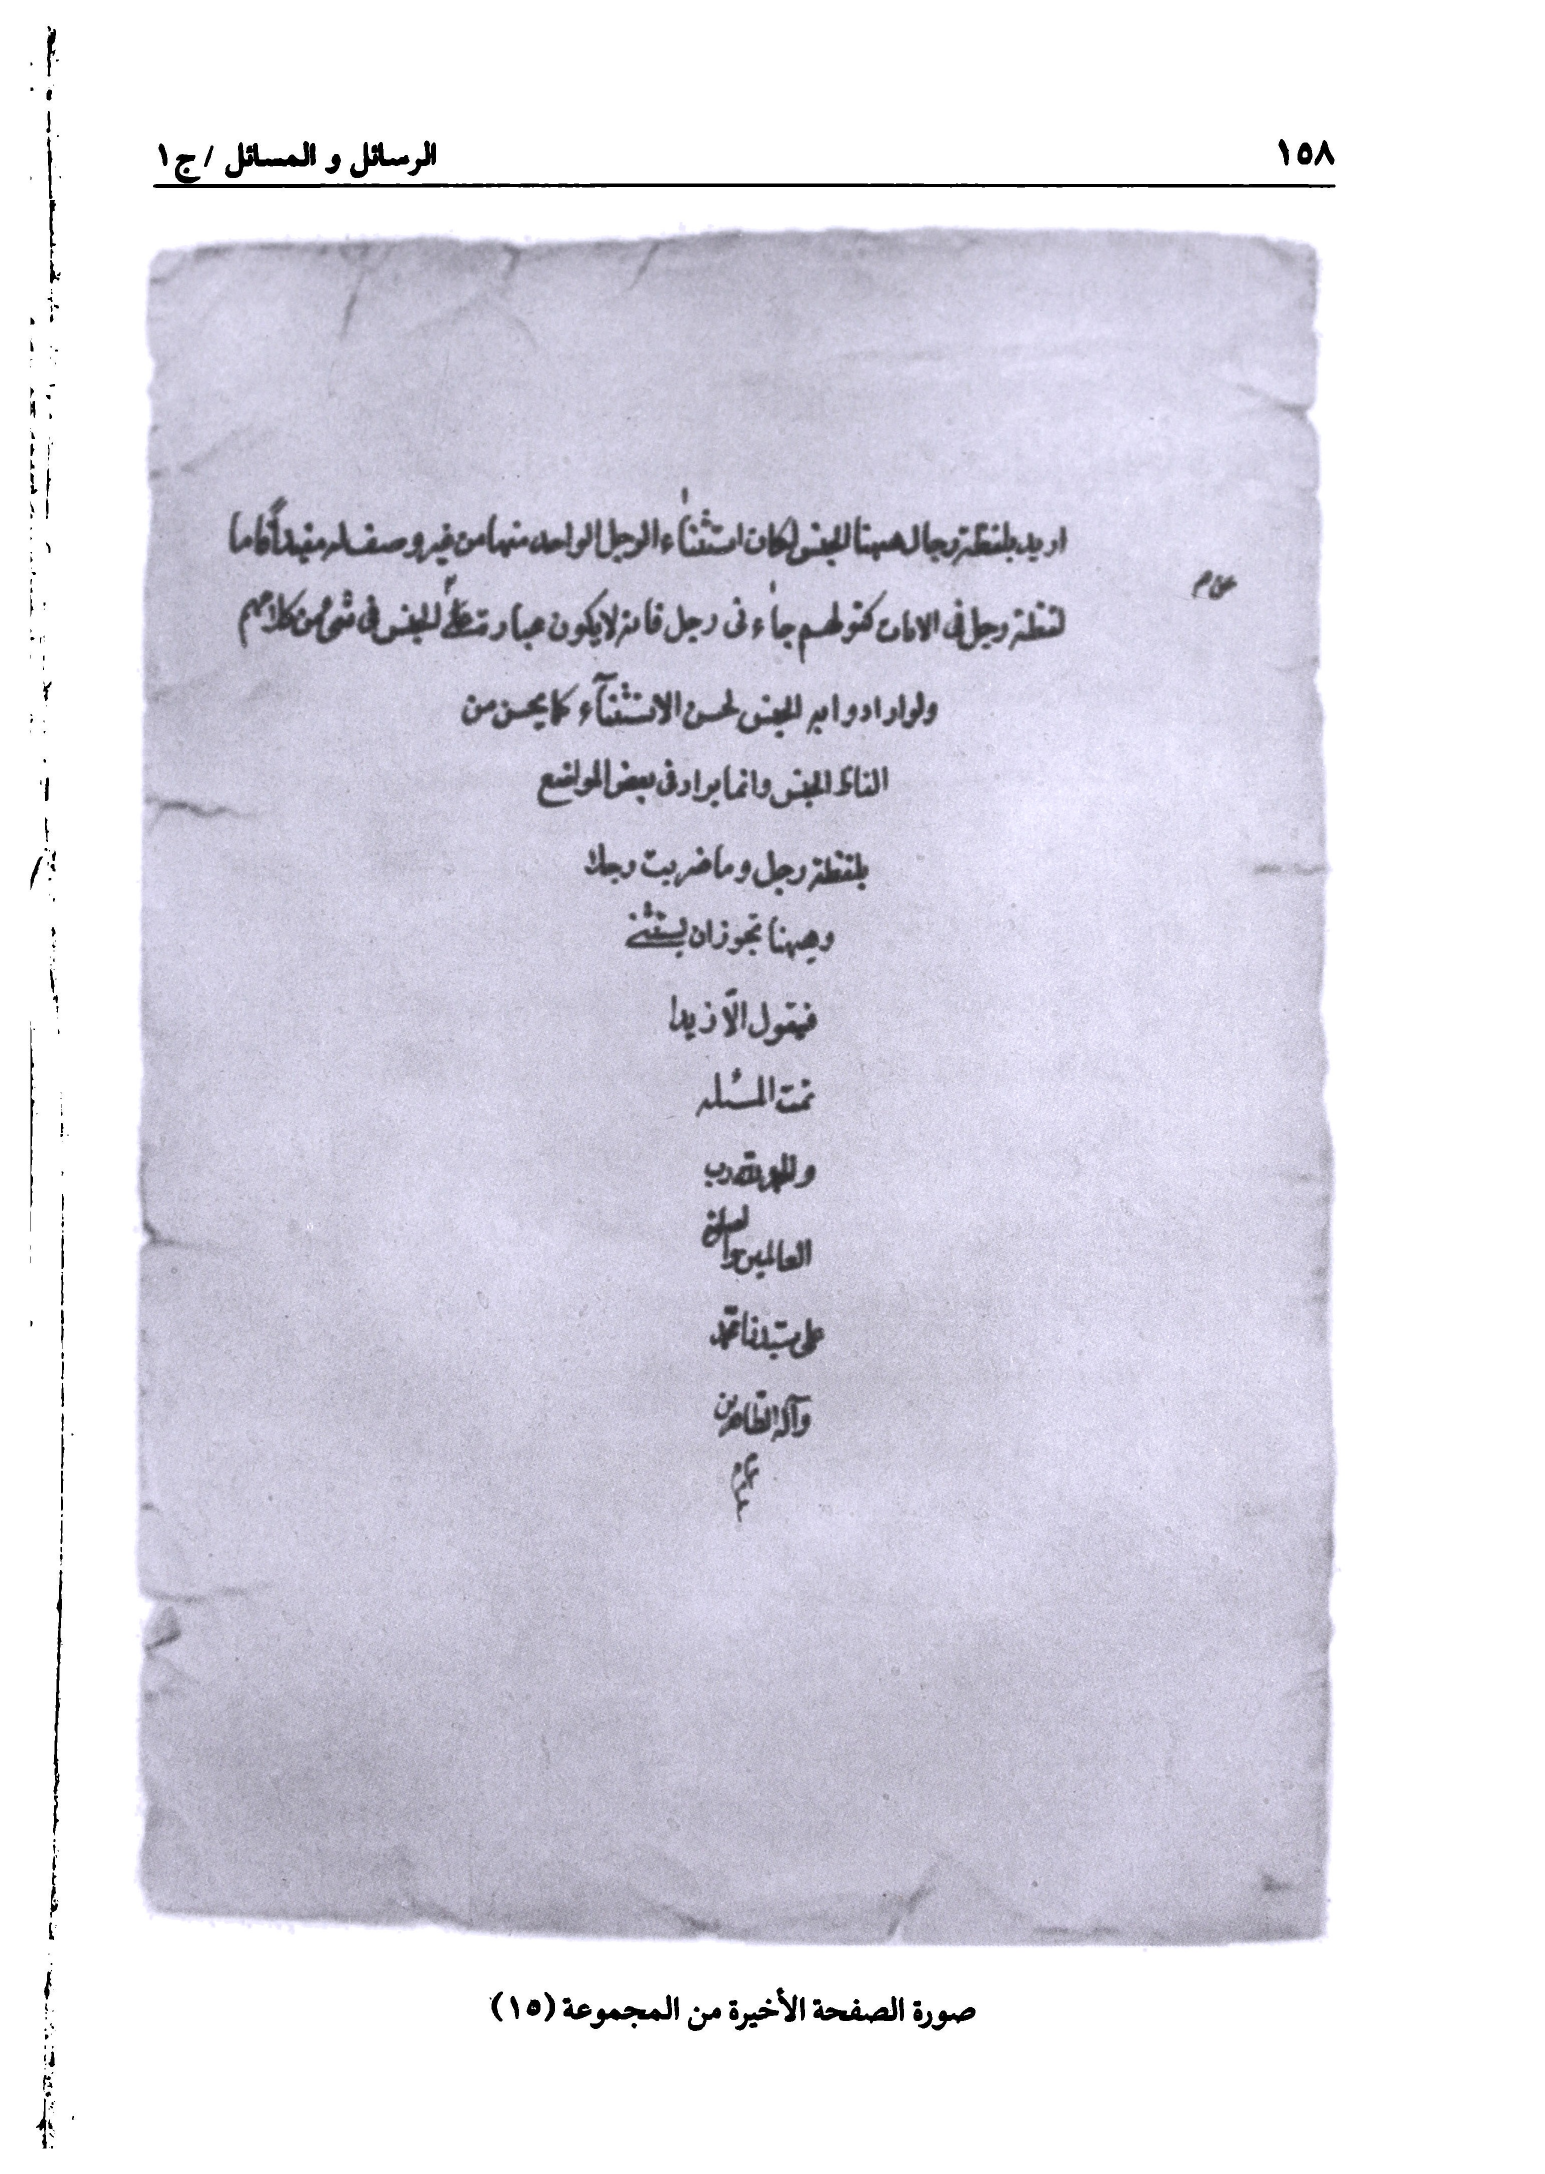 ١٥٨
الرسائل و المسائل / ج١
اريد بلفظة رجال ههنا الجنس لكان استثناء الرجل الواحد منها من غير وصف له مفيداً فاما
لفظة رجل فى الاثبات كقولهم جاءنى رجل فانه لا يكون عبارة عن الجنس فى شئ من كلامهم
ولو ارادوا به الجنس لحسن الاستثنآء كما يحسن من
الفاظ الجنس وانما يراد فى بعض المواضع
بلفظة رجل وما ضربت رجلا
وههنا تجوز ان يستثنى
فيقول الّا زيدا
تمت المسئله
والحمد لله رب
العالمين والصلوة
على سيّدنا محمّد
وآله الطّاهرين
صورة الصفحة الأخيرة من المجموعة (١٥)